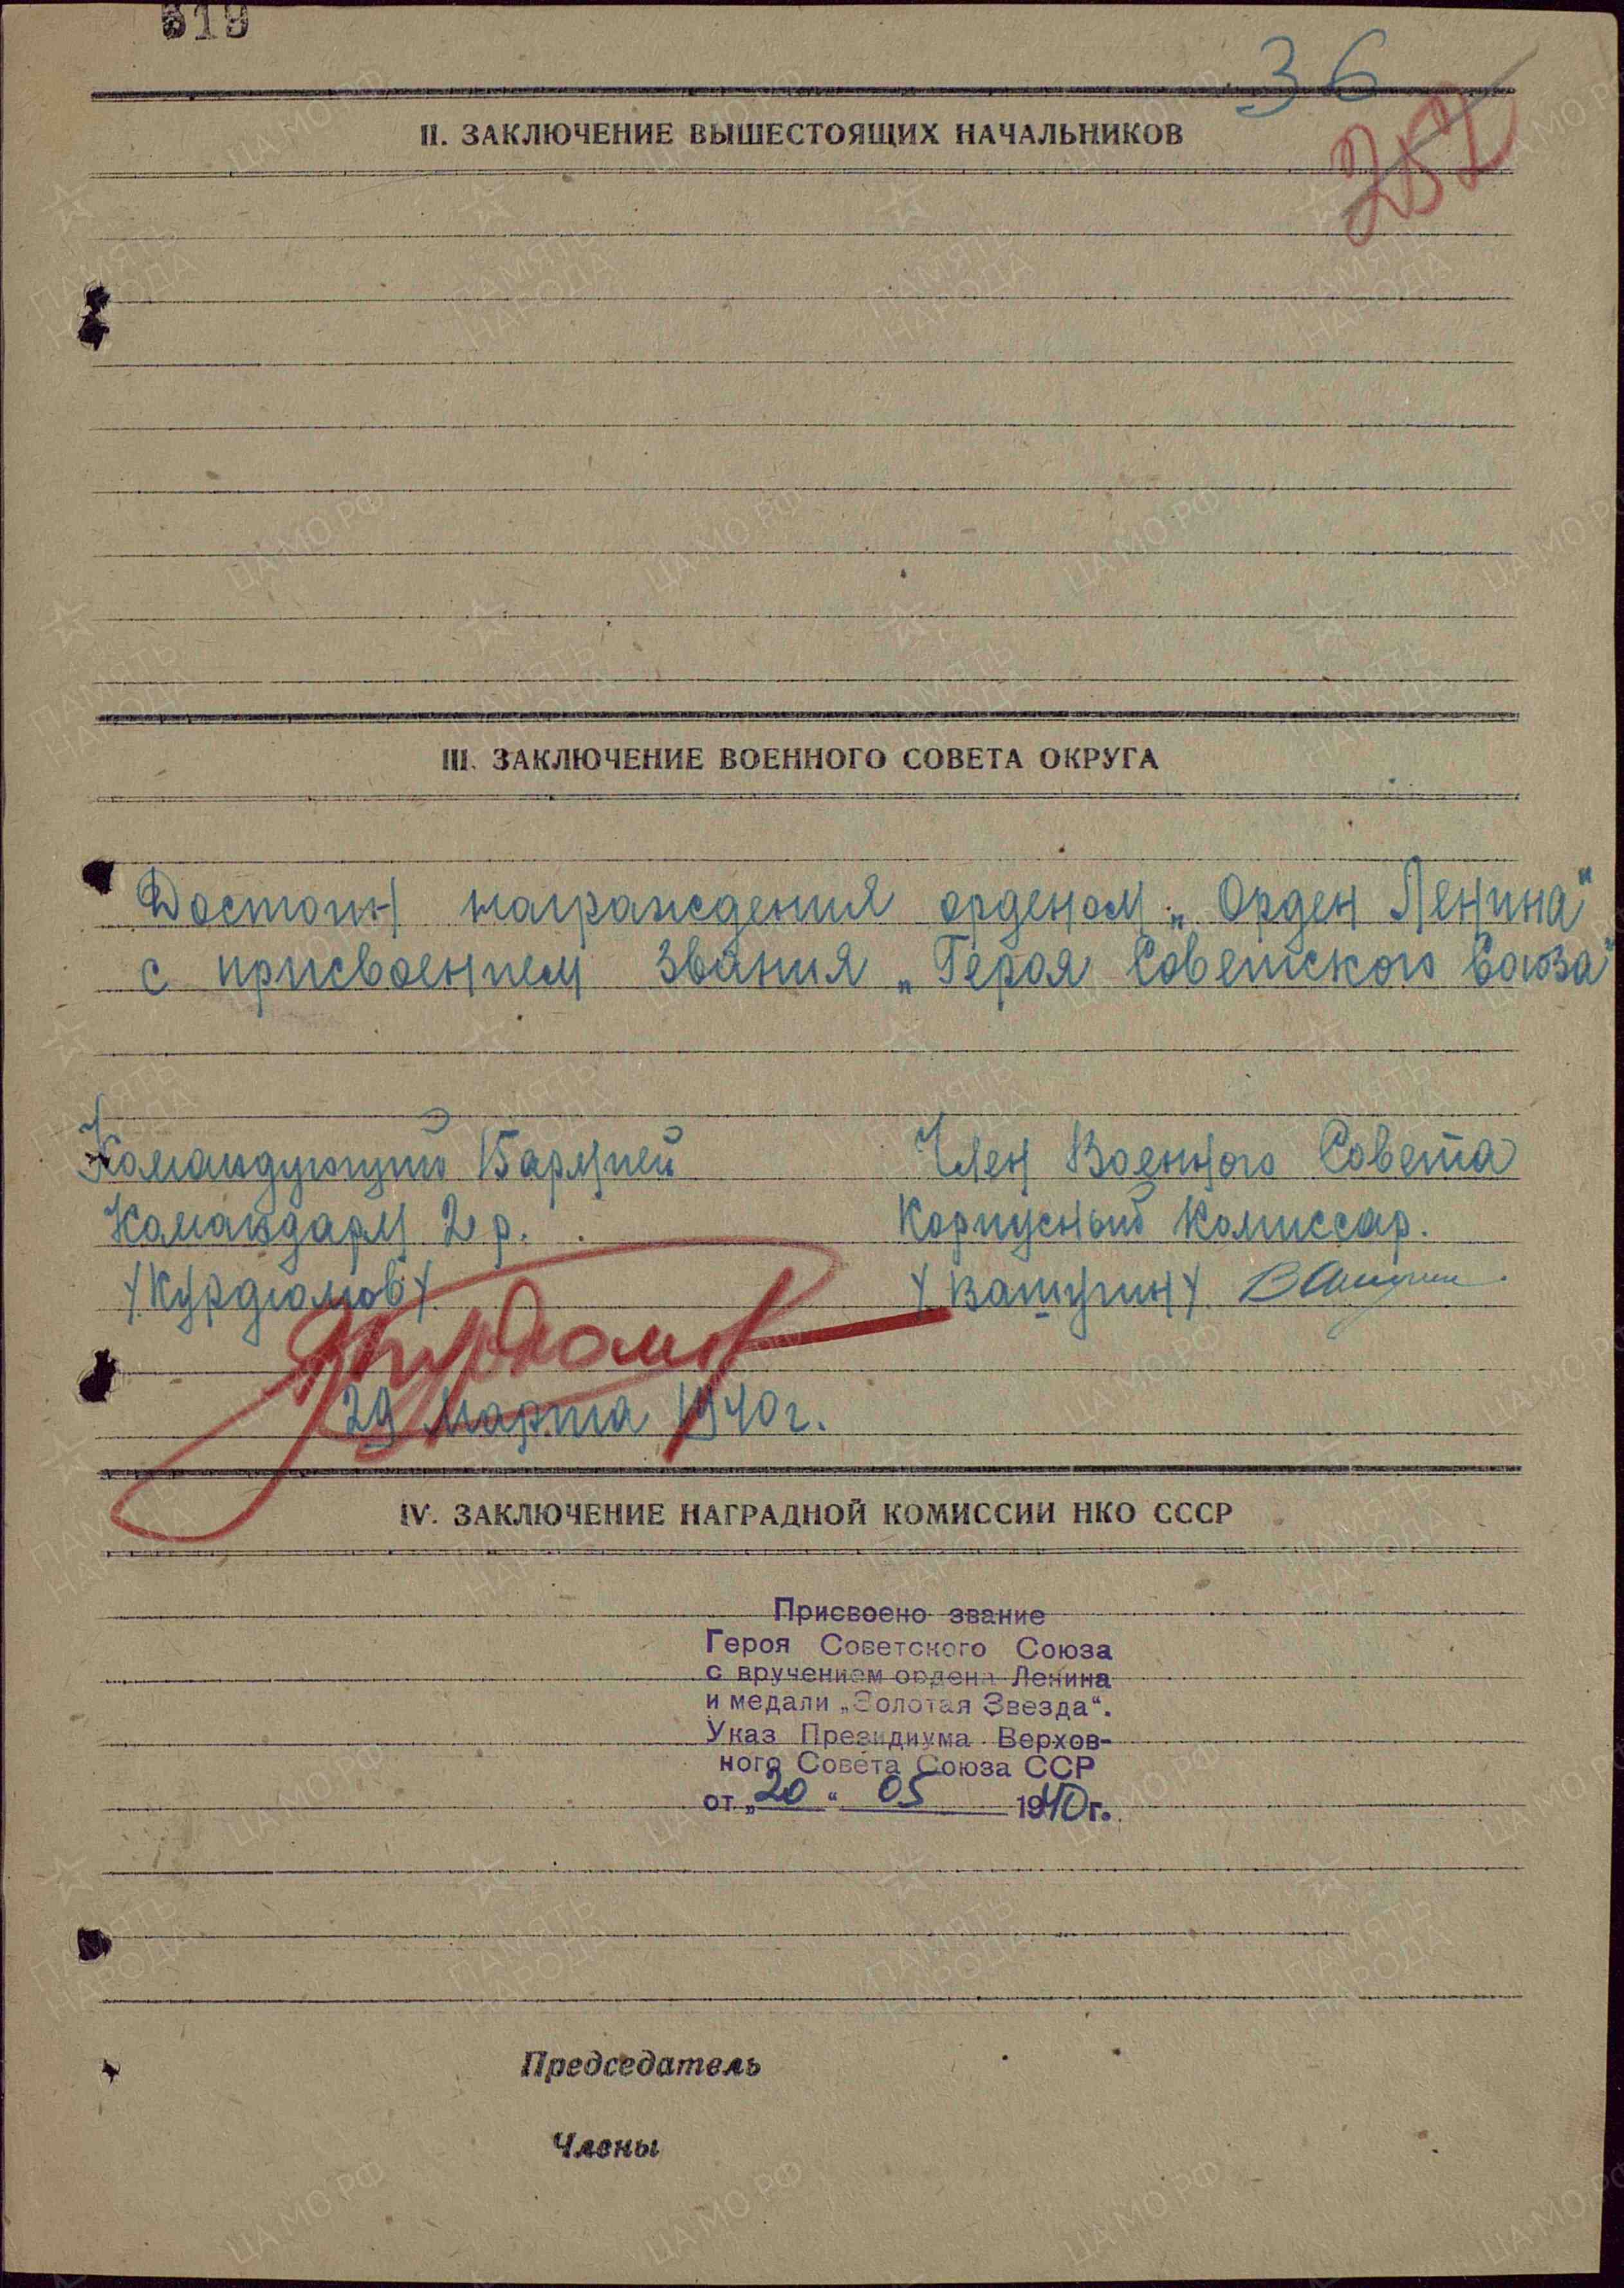 619
36
252
II. ЗАКЛЮЧЕНИЕ ВЫШЕСТОЯЩИХ НАЧАЛЬНИКОВ
III. ЗАКЛЮЧЕНИЕ ВОЕННОГО СОВЕТА ОКРУГА
Достоин награждения орденом „Орден Ленина"
с присвоением звания „Героя Советского Союза"
Командующий 15 армией
Командарм 2 р.
/Курдюмов/
Курдюмов
29 марта 1940 г.
Член Военного Совета
Корпусный Комиссар.
/Вашугин/ Вашугин
IV. ЗАКЛЮЧЕНИЕ НАГРАДНОЙ КОМИССИИ НКО СССР
Присвоено звание
Героя Советского Союза
с вручением ордена Ленина
и медали „Золотая Звезда".
Указ Президиума Верхов-
ного Совета Союза ССР
от „20" 05 1940 г.
Председатель
Члены
ПАМЯТЬ НАРОДА
ЦА МО РФ